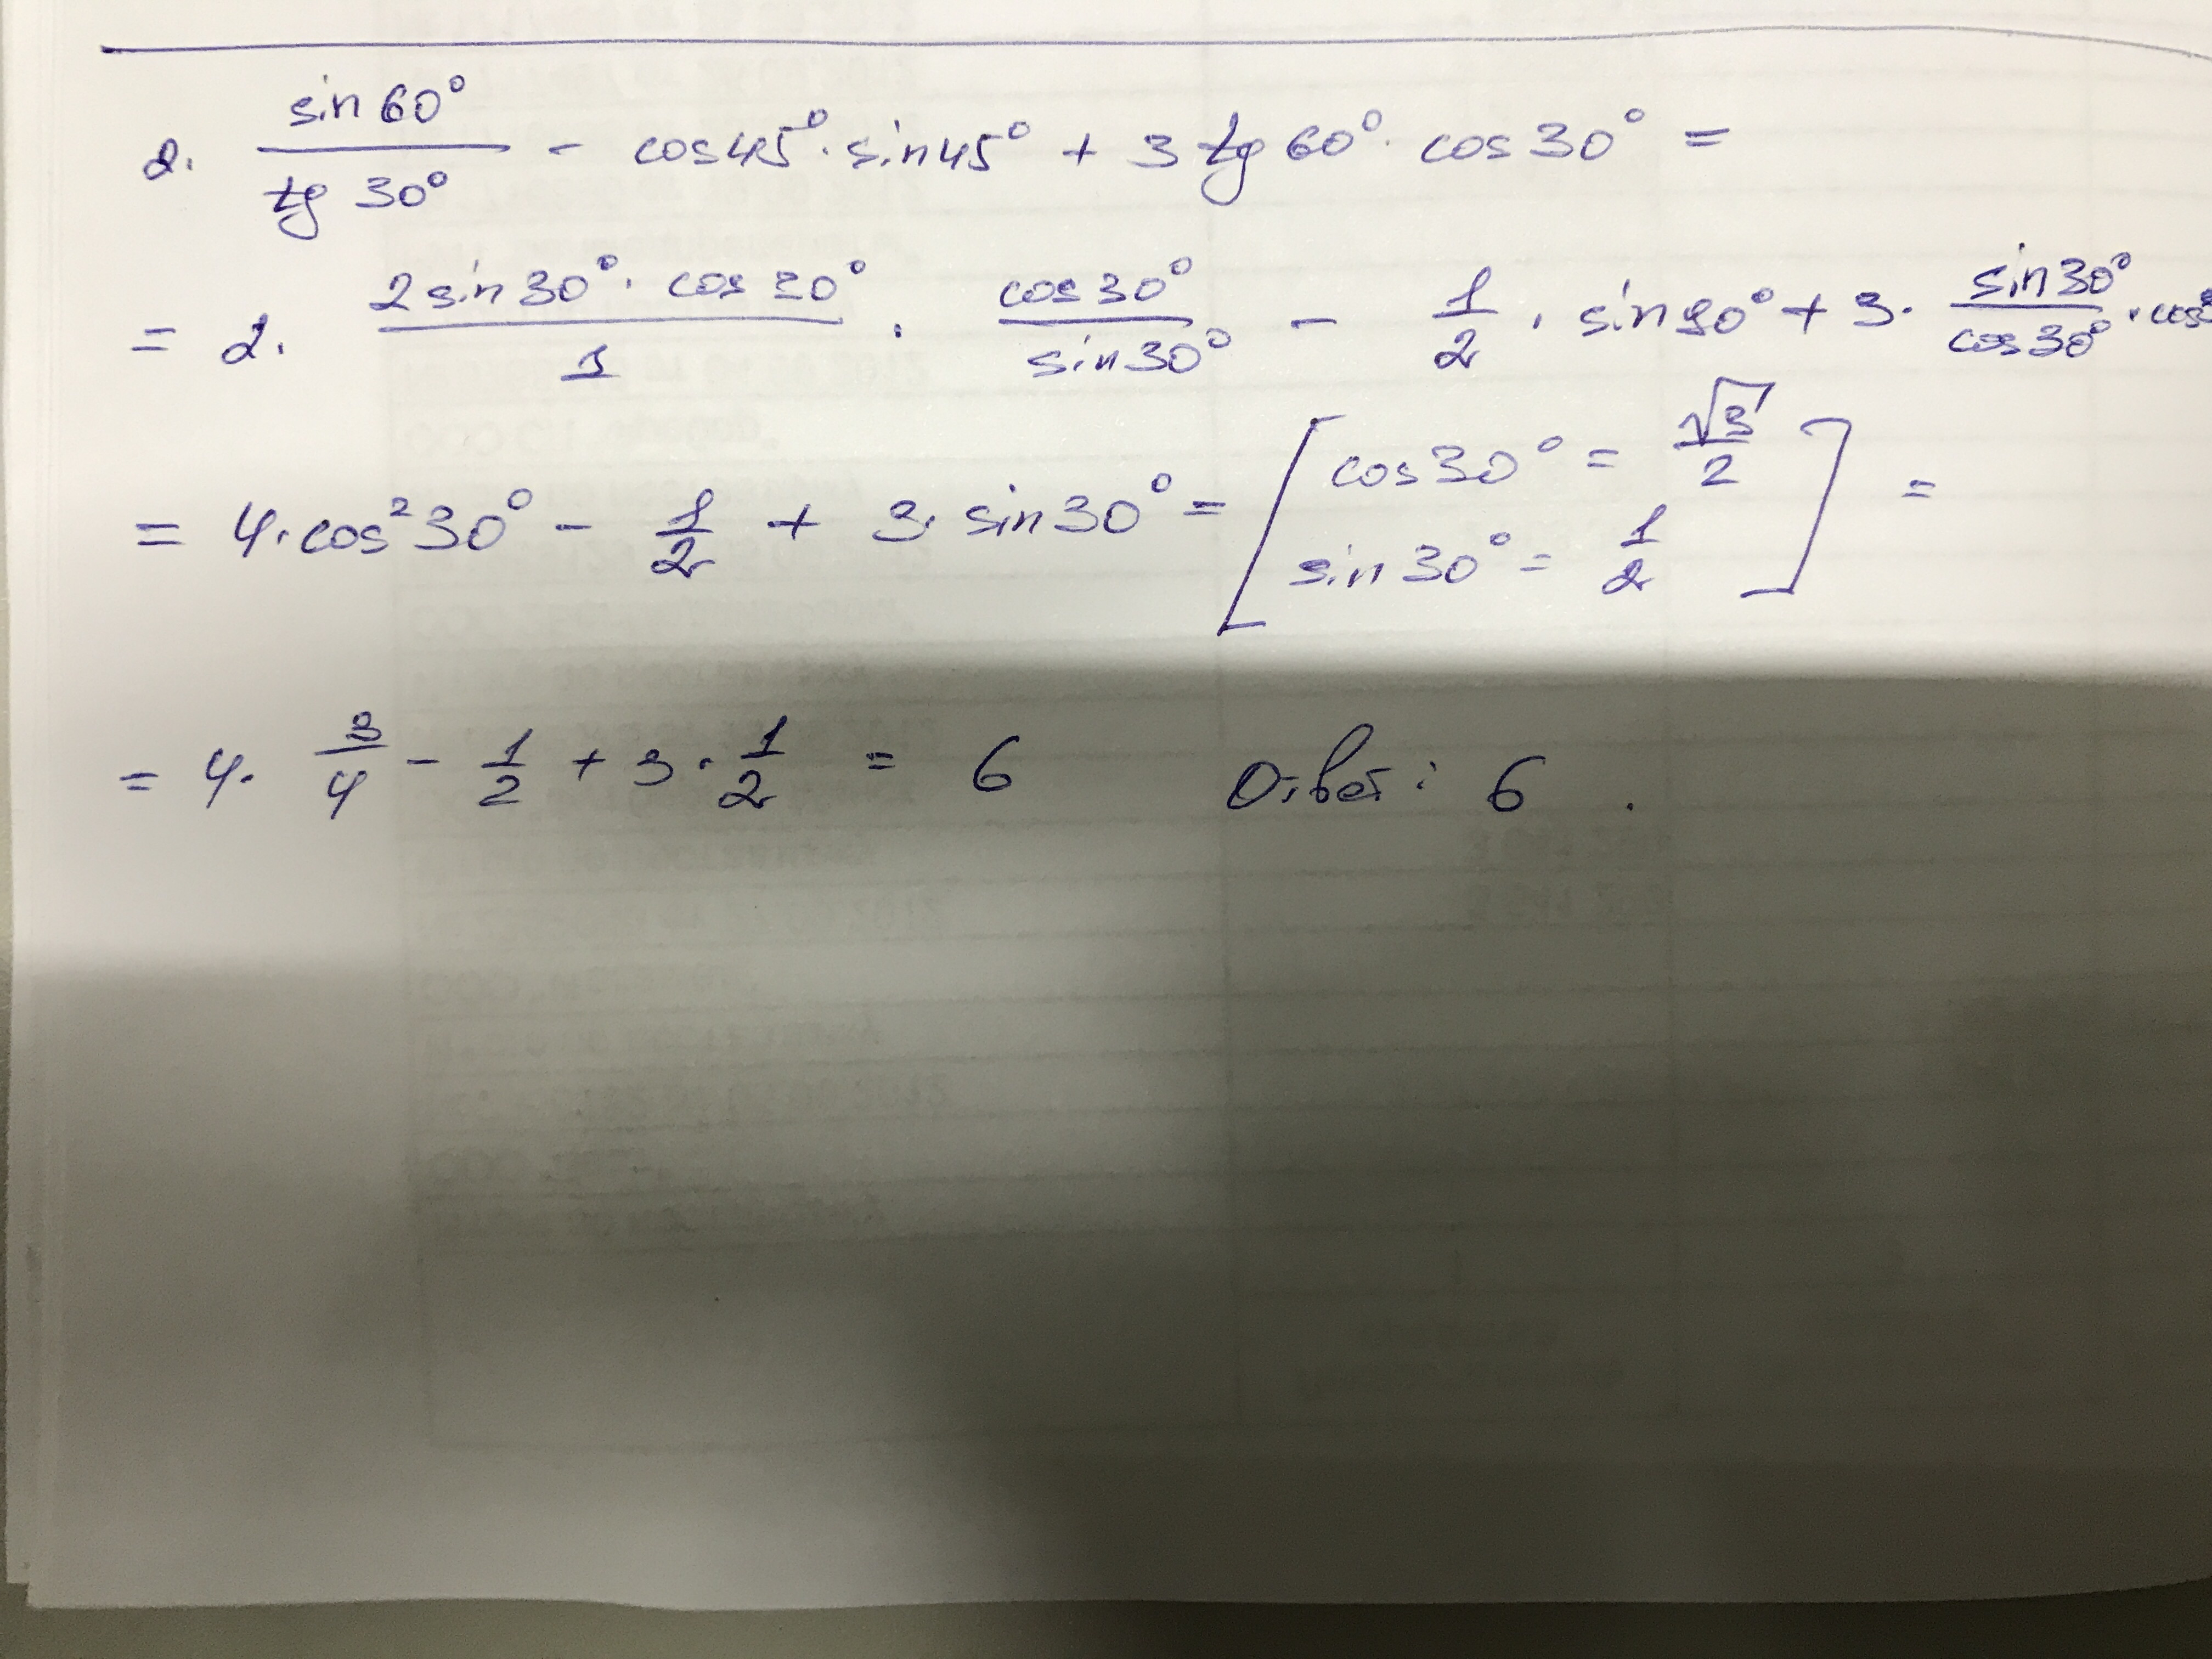 2. sin 60° / tg 30° - cos 45° · sin 45° + 3 tg 60° · cos 30° =
= 2 · 2 sin 30° · cos 30° / 1 · cos 30° / sin 30° - 1/2 · sin 90° + 3 · sin 30° / cos 30° · cos
= 4 · cos² 30° - 1/2 + 3 · sin 30° = [ cos 30° = √3/2
sin 30° = 1/2 ] =
= 4 · 3/4 - 1/2 + 3 · 1/2 = 6 Ответ: 6.